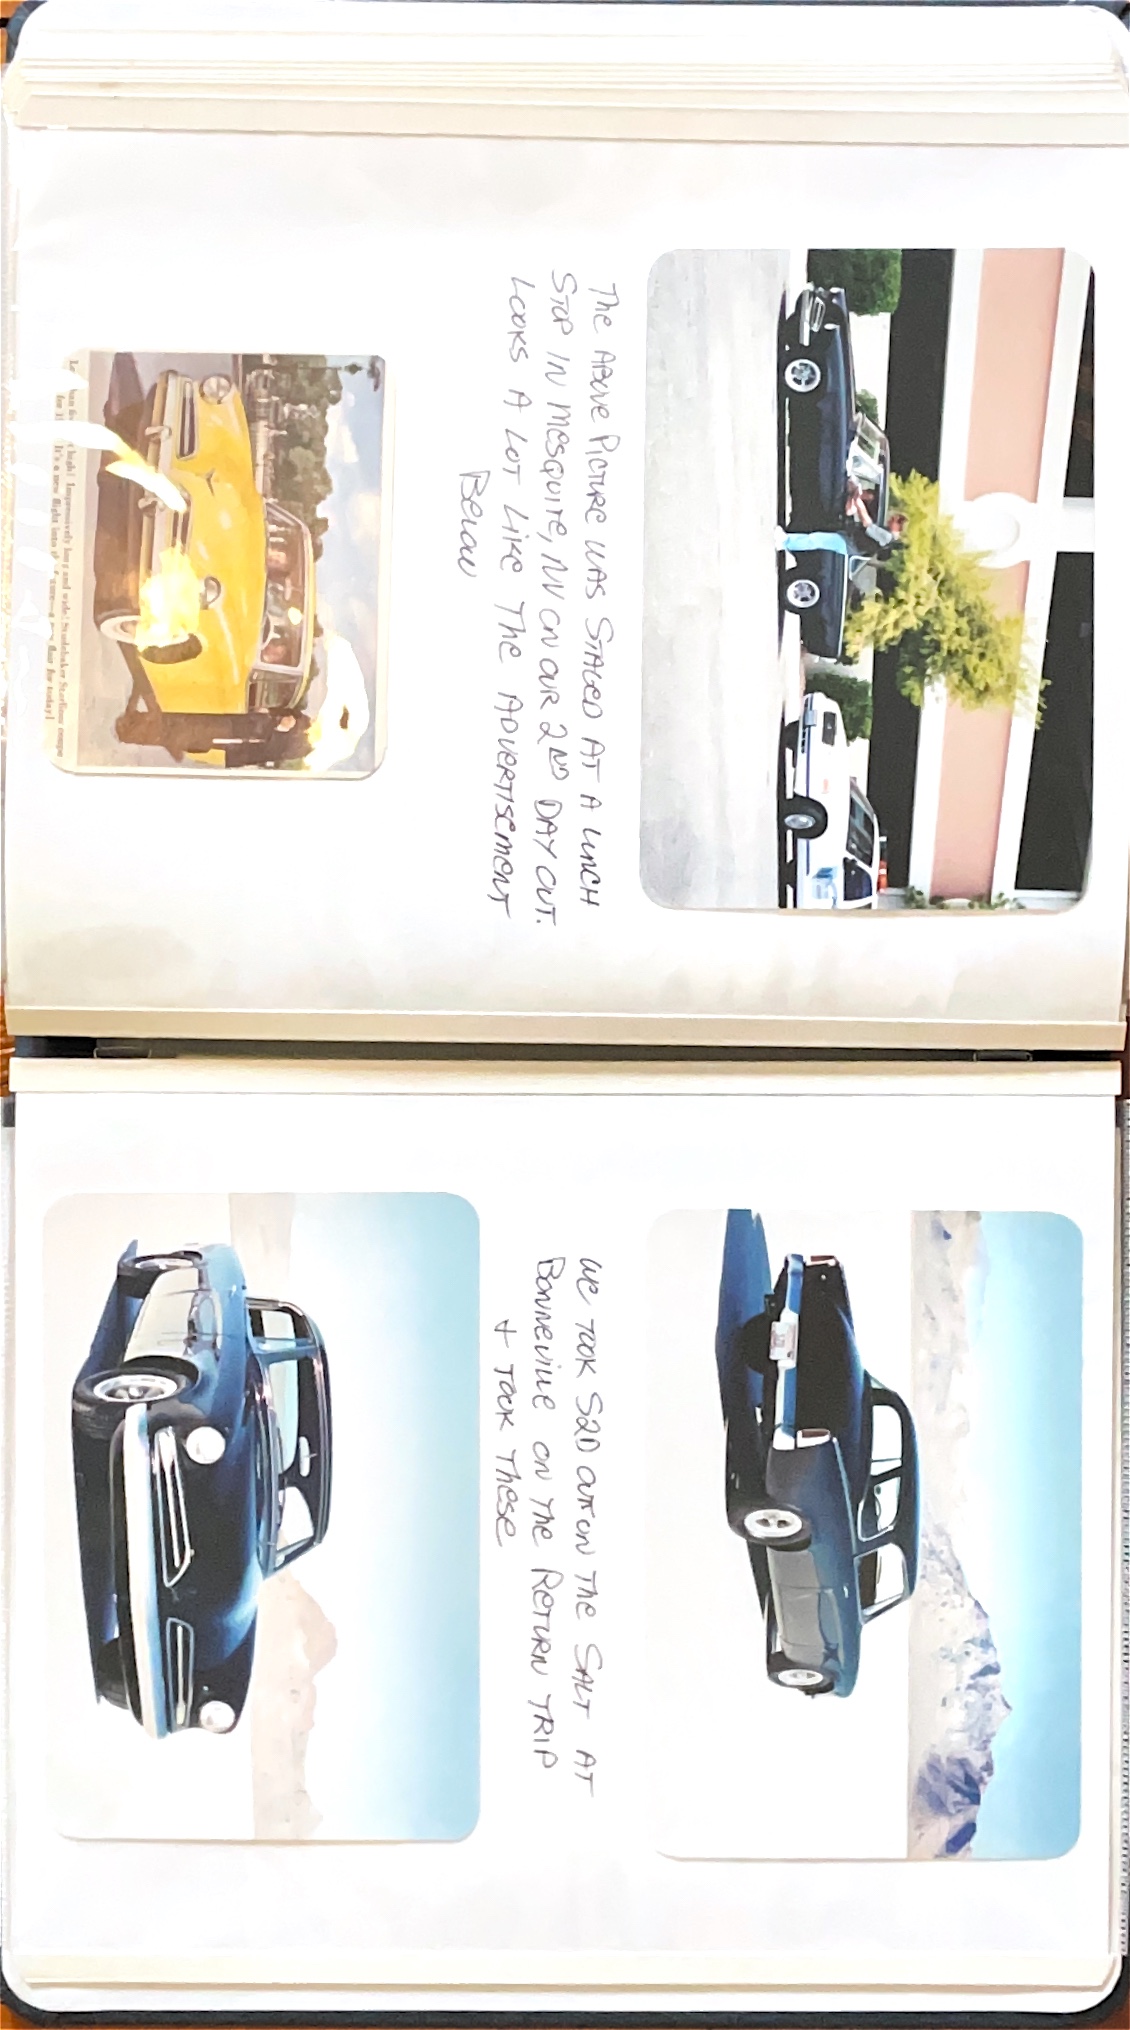 The Above Picture was Staged at a Lunch
Stop in Mesquite, NV on our 2ND Day out.
Looks a lot like the Advertisement
Below
high! Impressively long and wide! Studebaker Starliner coupe
for It's a new flight into flair for today!
We took S2D out on the Salt at
Bonneville on the Return trip
& took these